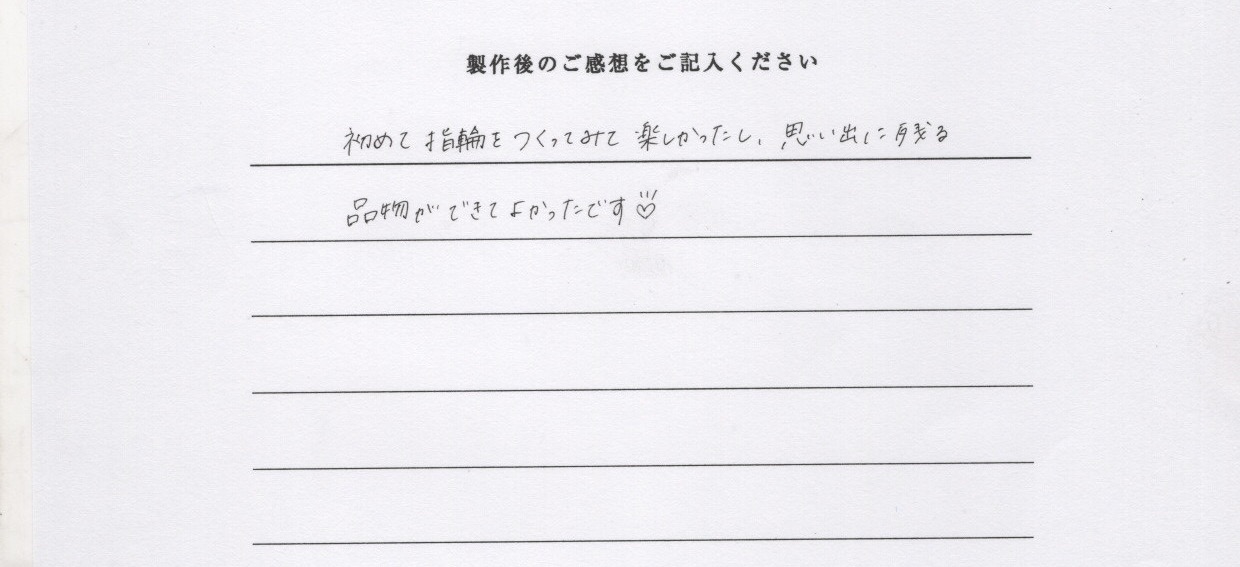 製作後のご感想をご記入ください
初めて指輪をつくってみて楽しかったし、思い出に残る
品物ができてよかったです♡